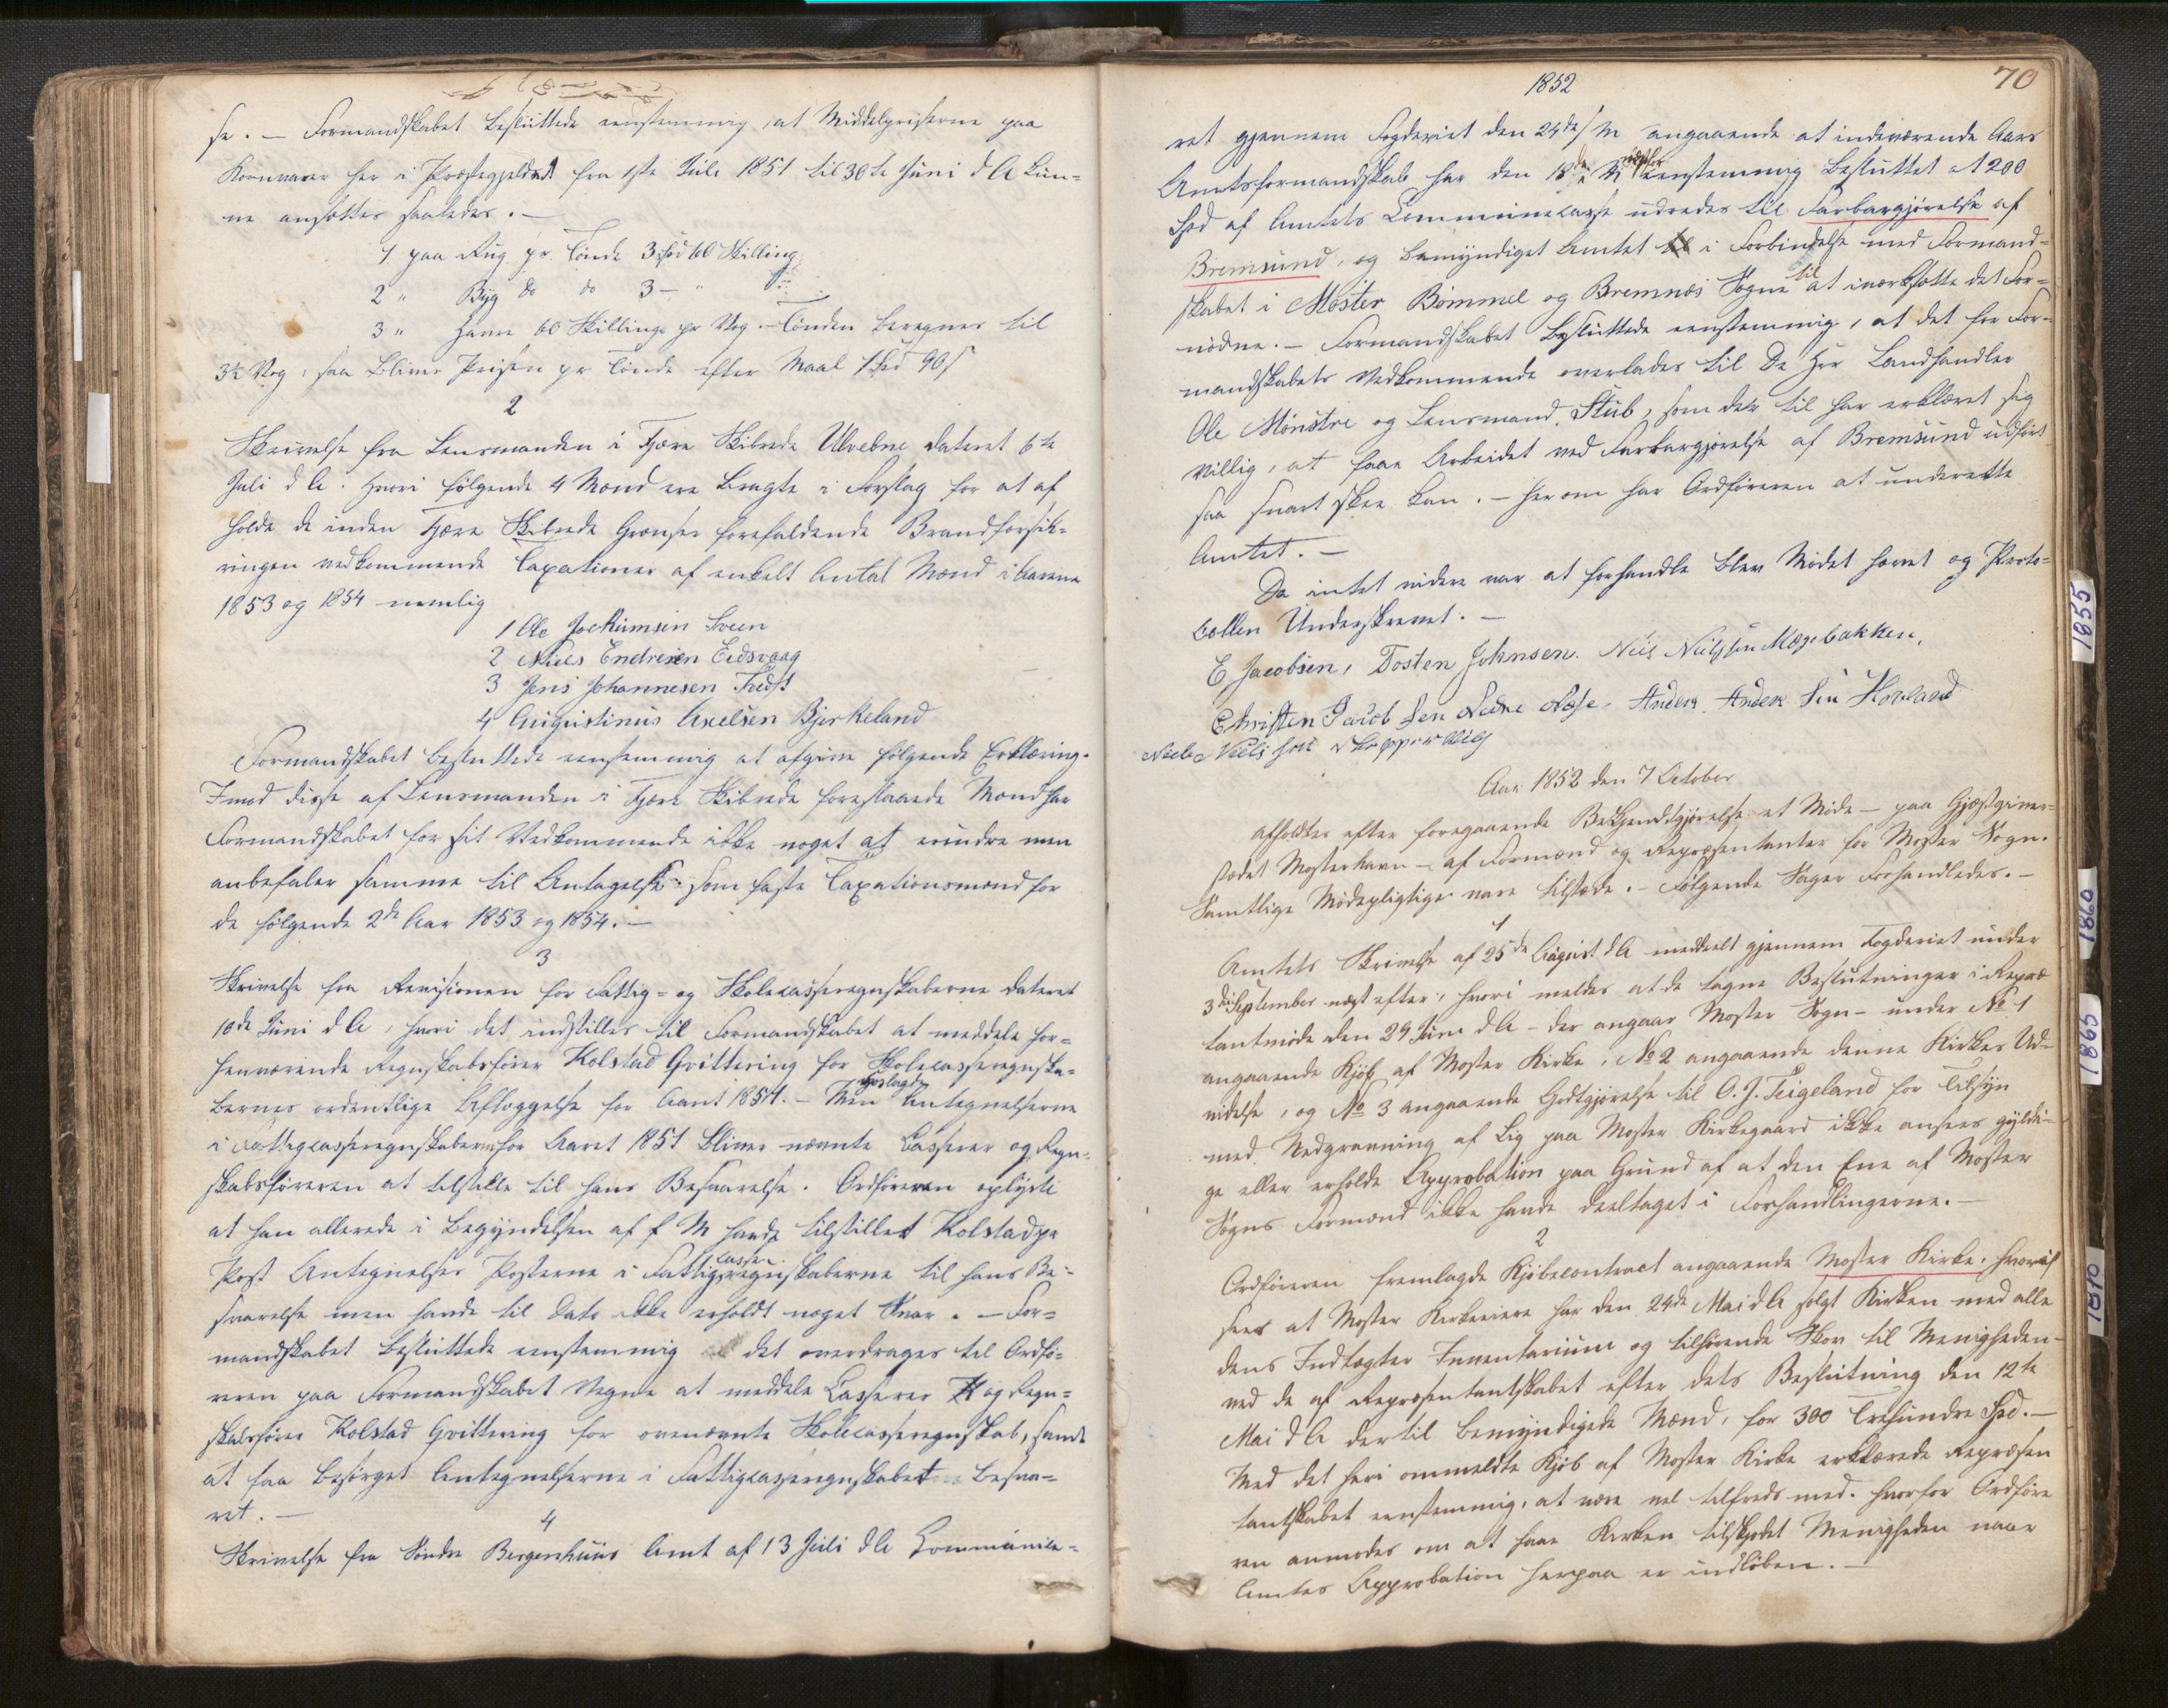 se. – Formandskabet besluttede eenstemmig, at Middelpriserne paa
Kornvarer her i Præstegjeldet fra 1ste Juli 1851 til 30te Juni d A kun-
ne ansættes saaledes. –
1 paa Rug pr Tønde 3 Spd 60 Skilling
2 " Byg do do 3 – "
3 " Havre 60 Skilling pr Vog. – Tønden beregnes til
3½ Vog, saa bliver Prisen pr Tønde efter Maal 1 Spd 90 s
2
Skrivelse fra Lensmanden i Fjære Skibrede Ulvebne dateret 6te
Juli d A. hvori følgende 4 Mænd ere bragte i Forslag for at af
holde de inden Fjære Skibrede Grændser forefaldende Brandforsik-
ringen vedkommende Taxationer af enkelt Antal Mænd i Aarene
1853 og 1854 nemlig
1 Ole Jochumsen Sveen
2 Niels Endresen Eidsvaag
3 Jens Johannesen
4 Augustinus Axelsen Bjerkeland
Formandskabet besluttede eenstemmig at afgive følgende Erklæring.
Imod disse af Lensmanden i Fjære Skibrede foreslaaede Mænd har
Formandskabet for sit Vedkommende ikke noget at erindre men
anbefaler samme til Antagelse som faste Taxationsmænd for
de følgende 2de Aar 1853 og 1854. –
3
Skrivelse fra Revisionen for Fattig- og Skolecasseregnskaberne dateret
10de Juni d A, hvori det indstilles til Formandskabet at meddele for-
henværende Regnskabsfører Kolstad Qvittering for Skolecasseregnska-
bernes ordentlige Aflæggelse for Aaret 1851. – Men Antegnelserne
i Fattigcasseregnskaberne for Aaret 1851 bliver nævnte Casserer og Regn-
skabsføreren at tilstille til hans Besvarelse. Ordføreren oplyste
at han allerede i Begyndelsen af f M havde tilstillet Kolstad pr
Post Antegnelses Posterne i Fattigcasseregnskaberne til hans Be-
svarelse men havde til Dato ikke erholdt noget Svar. – For-
mandskabet besluttede eenstemmig det overdrages til Ordfø-
reren paa Formandskabet Vegne at meddele Casserer og Regn-
skabsfører Kolstad Qvittering for ovennævnte Skolecasseregnskab, samt
at faa besørget Antegnelserne i Fattigcasseregnskabet besva-
ret. –
4
Skrivelse fra Søndre Bergenhuus Amt af 13 Juli d A Communice-
1852
70
ret gjennem Fogderiet den 24de s M angaaende at indeværende Aars
Amtsformandskab har den 18de næstfor eenstemmig besluttet at 200
Spd af Amtets Communecasse udredes til Farbargjørelse af
Bremsund, og bemyndiget Amtet i Forbindelse med Formand-
skabet i Moster Bømmel og Bremnæs Sogne til at iværksætte det For-
nødne. – Formandskabet besluttede eenstemmig, at det for For-
mandskabets Vedkommende overlades til De Hrr Landhandler
Ole Mønstre og Lensmand Stub, som dertil har erklæret sig
villig, at faae Arbeidet ved Farbargjørelse af Bremsund udført
saa snart skee kan. – Herom har Ordføreren at underrette
Amtet. –
Da intet videre var at forhandle blev Mødet hævet og Proto-
collen Underskrevet. –
E Jacobsen, Tosten Johnsen. Niels Nielssen Møgebakken.
Christen Jacob Sen Nedre Næse. Anders Anders Sen Hovland
Niels Niels sen
Aar 1852 den 7 October
afholdtes efter foregaaende Bekjendtgjørelse et Møde – paa Gjæstgiver-
stedet Mosterhavn – af Formænd og Repræsentanter for Moster Sogn.
Samtlige Mødepligtige vare tilstede. – Følgende Sager Forhandledes. –
1
Amtets Skrivelse af 25de August d A meddeelt gjennem Fogderiet under
3die September næst efter, hvori meldes at de tagne Beslutninger i Repræ
tantmøde den 29 Juni d A – der angaar Moster Sogn – under No 1
angaaende Kjøb af Moster Kirke, No 2 angaaende denne Kirkes Ud-
videlse, og No 3 angaaende Godtgjørelse til O. J. Teigeland for Tilsyn
med Nedgravning af Lig paa Moster Kirkegaard ikke ansees gyldi-
ge eller erholde Approbation paa Grund af at den Ene af Moster
Sogns Formænd ikke havde deeltaget i Forhandlingerne. –
2
Ordføreren fremlagde Kjøbecontract angaaende Moster Kirke, hvoraf
sees at Moster Kirkeeiere har den 24de Mai d A solgt Kirken med alle
dens Indtægter Inventarium og tilhørende Skov til Menigheden
ved de af Repræsentantskabet efter dets Beslutning den 12te
Mai d A dertil bemyndigede Mænd, for 300 Trehundre Spd. –
Med det heri ommeldte Kjøb af Moster Kirke erklærede Repræsen
tantskabet eenstemmig, at være vel tilfreds med. hvorfor Ordføre
ren anmodes om at faae Kirken tilskjødet Menigheden naar
Amtets Approbation herpaa er indløben. –
1855
1860
1865
1870